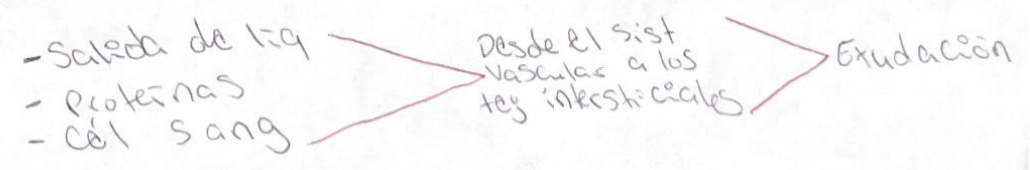 - Salida de liq
- Proteínas
- Cél sang
Desde el sist
vascular a los
tej intersticiales
Exudación